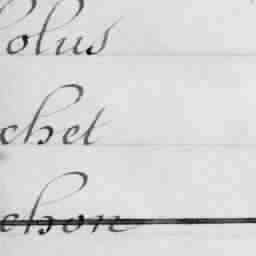 olus
chet
chon